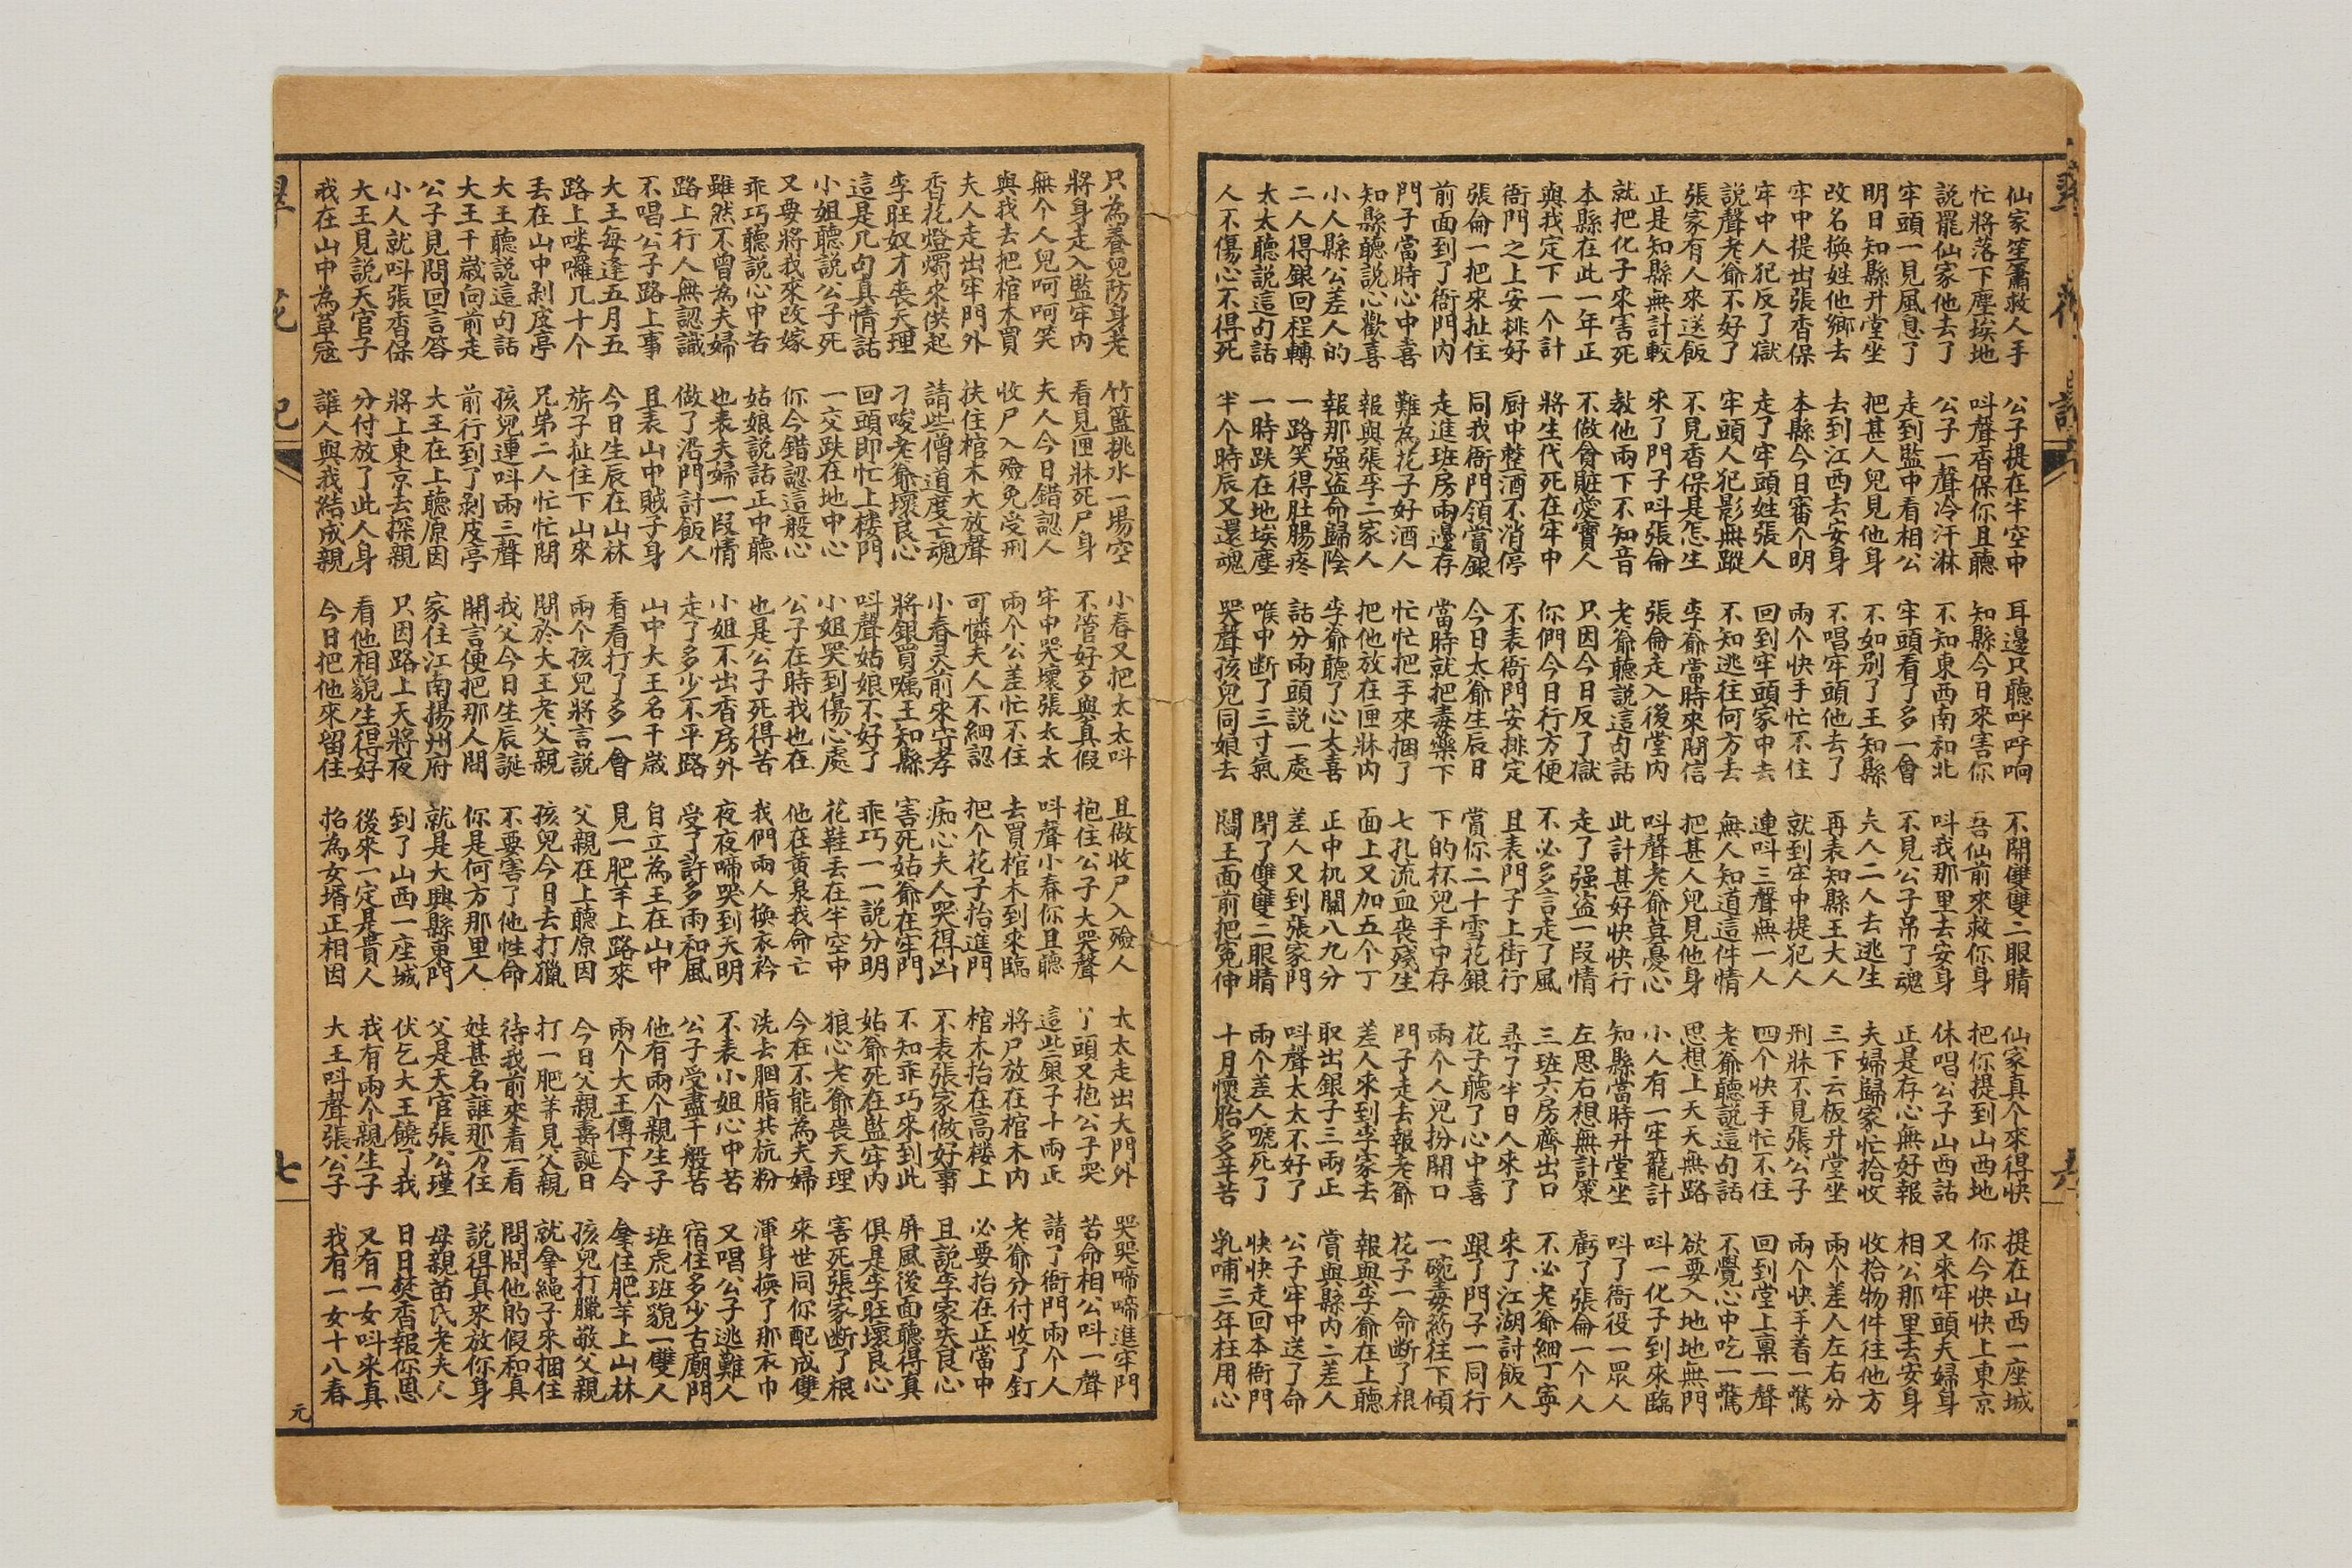 仙家笙簫救人手 公子提在半空中 耳邊只聽呼呼响 不開雙雙二眼睛 仙家真个來得快 提在山西一座城
忙將落下塵埃地 呌聲香保你且聽 知縣今日來害你 吾仙前來救你身 把你提到山西地 你今快快上東京
說罷仙家他去了 公子一聲冷汗淋 不知東西南和北 呌我那里去安身 休唱公子山西話 又來牢頭夫婦身
牢頭一見風息了 走到監中看相公 牢頭看了多一會 不見公子吊了魂 正是存心無好報 相公那里去安身
明日知縣升堂坐 把甚人兒見他身 不如别了王知縣 夫人二人去逃生 夫婦歸家忙拾收 收拾物件往他方
改名換姓他鄉去 去到江西去安身 不唱牢頭他去了 再表知縣王大人 三下云板升堂坐 兩个差人左右分
牢中提出張香保 本縣今日審个明 兩个快手忙不住 就到牢中提犯人 刑牀不見張公子 兩个快手着一驚
牢中人犯反了獄 走了牢頭姓張人 回到牢頭家中去 連呌三聲無一人 四个快手忙不住 回到堂上禀一聲
說聲老爺不好了 牢頭人犯影無蹤 不知逃往何方去 無人知道這件情 老爺聽說這句話 不覺心中吃一驚
張家有人來送飯 不見香保是怎生 李爺當時來問信 把甚人兒見他身 思想上天天無路 欲要入地地無門
正是知縣無計較 來了門子呌張倫 張倫走入後堂內 呌聲老爺莫憂心 小人有一牢籠計 呌一化子到來臨
就把化子來害死 教他兩下不知音 老爺聽說這句話 此計甚好快快行 知縣當時升堂坐 呌了衙役一眾人
本縣在此一年正 不做貪賍愛寶人 只因今日反了獄 走了强盜一叚情 左思右想無計策 虧了張倫一个人
與我定下一个計 將生代死在牢中 你們今日行方便 不必多言走了風 三班六房齊出口 不必老爺細丁寧
衙門之上安排好 厨中整酒不消停 不表衙門安排定 且表門子上街行 尋了半日人來了 來了江湖討飯人
張倫一把來扯住 同我衙門領賞銀 今日太爺生辰日 賞你二十雪花銀 花子聽了心中喜 跟了門子一同行
前面到了衙門內 走進班房兩邊存 當時就把毒藥下 下的杯兒手中存 兩个人兒扮開口 一碗毒葯往下傾
門子當時心中喜 難為花子好酒人 忙忙把手來捆了 七孔流血喪殘生 門子走去報老爺 花子一命断了根
知縣聽說心歡喜 報與張李二家人 把他放在匣牀內 面上又加五个丁 差人來到李家去 報與李爺在上聽
小人縣公差人的 報那强盜命歸陰 李爺聽了心大喜 正中机關八九分 取出銀子三兩正 賞與縣內二差人
二人得銀回程轉 一路笑得肚腸疼 話分兩頭說一處 差人又到張家門 呌聲太太不好了 公子牢中送了命
太太聽說這句話 一時跌在地埃塵 喉中断了三寸氣 閉了雙雙二眼睛 兩个差人唬死了 快快走回本衙門
人不傷心不得死 半个時辰又還魂 哭聲孩兒同娘去 閻王面前把寃伸 十月懷胎多年苦 乳哺三年枉用心
只為養兒防身老 竹籃挑水一場空 小春又把太太呌 且做收尸入殮人 太太走出大門外 哭哭啼啼進牢門
將身走入監牢內 看見匣牀死尸身 不管好歹與真假 抱住公子大哭聲 丫頭又抱公子哭 苦命相公呌一聲
無个人兒呵呵笑 夫人今日錯認人 牢中哭壞張太太 呌聲小春你且聽 這些銀子十兩正 請了衙門兩个人
與我去把棺木買 收尸入殮免受刑 兩个公差忙不住 去買棺木到來臨 將尸放在棺木內 老爺分付收了釘
夫人走出牢門外 扶住棺木大放聲 可憐夫人不細認 把个花子抬進門 棺木抬在高楼上 必要抬在正當中
香花燈燭來供起 請些僧道度亡魂 小春灵前來守孝 痴心夫人哭得凶 不表張家做好事 且說李家失良心
李旺奴才喪天理 刁唆老爺壞良心 將銀買嘱王知縣 害死姑爺在牢門 不知乖巧來到此 屏風後面聽得真
這是几句真情話 回頭即忙上楼門 呌聲姑娘不好了 乖巧一一說分明 姑爺死在監牢內 俱是李旺壞良心
小姐聽說公子死 一交跌在地中心 小姐哭到傷心處 花鞋丟在半空中 狼心老爺喪天理 害死張家断了根
又要將我來改嫁 你今錯認這般心 公子在時我也在 他在黄泉我命亡 今在不能為夫婦 來世同你配成雙
乖巧聽說心中苦 姑娘說話正中聽 也是公子死得苦 我們兩人換衣衿 洗去胭脂共杭粉 渾身換了那衣巾
雖然不曾為夫婦 也表夫婦一叚情 小姐不出香房外 夜夜啼哭到天明 不表小姐心中苦 又唱公子逃難人
路上行人無認識 做了沿門討飯人 走了多少不平路 受了許多雨和風 公子受盡千般苦 宿住多少古廟門
不唱公子路上事 且表山中賊子身 山中大王名千歲 自立為王在山中 他有兩个親生子 班虎班貌一雙人
大王每逢五月五 今日生辰在山林 看看打了多一會 見一肥羊上路來 兩个大王傳下令 拿住肥羊上山林
路上嘍囉几十个 旂子扯住下山來 兩个孩兒將言說 父親在上聽原因 今日父親壽誕日 孩兒打臘敬父親
丟在山中剥皮亭 兄弟二人忙忙問 問於大王老父親 孩兒今日去打獵 打一肥羊見父親 就拿繩子來捆住
大王聽說這句話 孩兒連呌兩三聲 我父今日生辰誕 不要害了他性命 待我前來看一看 問問他的假和真
大王千歲向前走 前行到了剥皮亭 開言便把那人問 你是何方那里人 姓甚名誰那方住 說得真來放你身
公子見問回言答 大王在上聽原因 家住江南揚州府 就是大興縣東門 父是天官張公瑾 母親苗氏老夫人
小人就呌張香保 將上東京去探親 只因路上天將夜 到了山西一座城 伏乞大王饒了我 日日焚香報你恩
大王見說天官子 分付放了此人身 看他相貌生得好 後來一定是貴人 我有兩个親生子 又有一女呌來真
我在山中為草寇 誰人與我結成親 今日把他來留住 招為女壻正相因 大王呌聲張公子 我有一女十八春
七
元